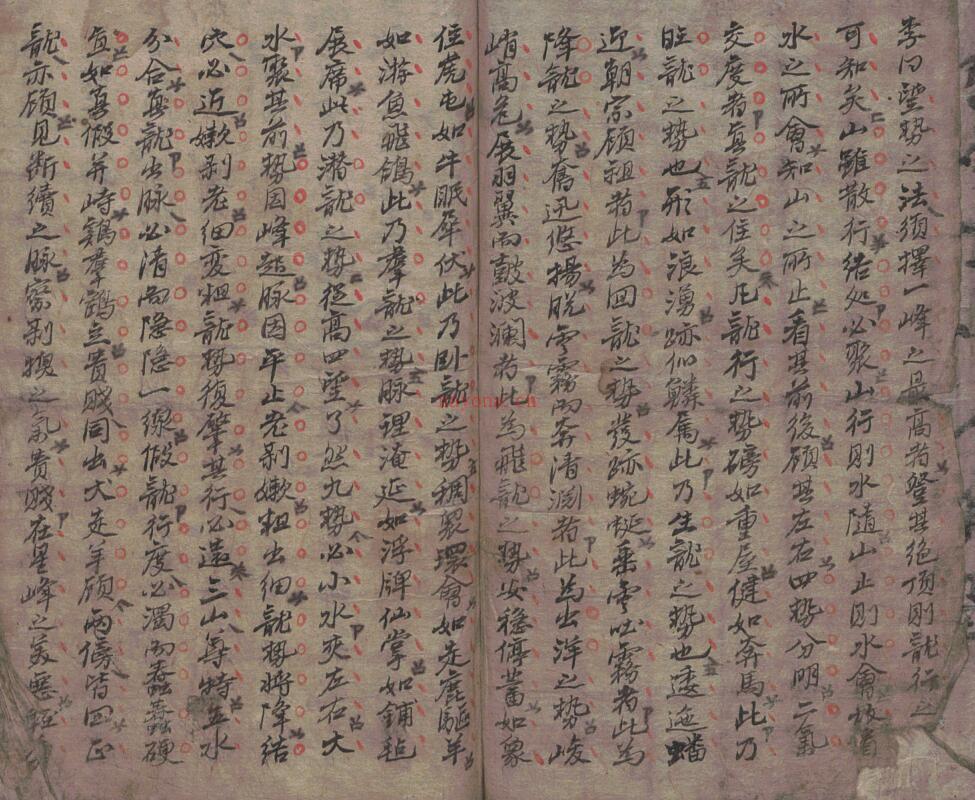 李曰望势之法须擇一峰之最高者登其绝顶則龍行之
可知矣山雖散行结处必聚山行則水隨山止則水會故首
水之所會知山之所止看其前後顾其左右四势分明二氣
交度者真龍之住矣凡龍行之势磅如重屋健如奔馬此乃
旺龍之势也形如浪湧跡似鱗属此乃生龍之势也逶迤蟠
迎朝宗顾祖者此为回龍之势發跡蜿蜒乗雲吐霧者此为
降龍之势奮迅悠揚脱雲霧而奔清渊者此为出洋之势峻
峭高危展羽翼而鼓波澜者此为飛龍之势安穏停蓄如象
住虎屯如牛眠犀伏此乃卧龍之势稠褁環會如走鹿驅羊
如游魚飛鴿此乃羣龍之势脉理淹延如浮牌仙掌如鋪毡
展席此乃潜龍之势從高四望了然九势必小水夾左右大
水聚其前势因峰起脉因平止老剥嫩粗出细龍势将降结
穴必近嫩剥老细变粗龍势復擎其行必遠三山尊特五水
分合真龍出脉必清而隐隐一線假龍行度必濁而蠢蠢硬
直如真假并峙鶏羣鶴立貴賤同出犬走羊顾两傍皆回正
龍亦顾见断續之脉察剥换之氣貴賤在星峰之美悪